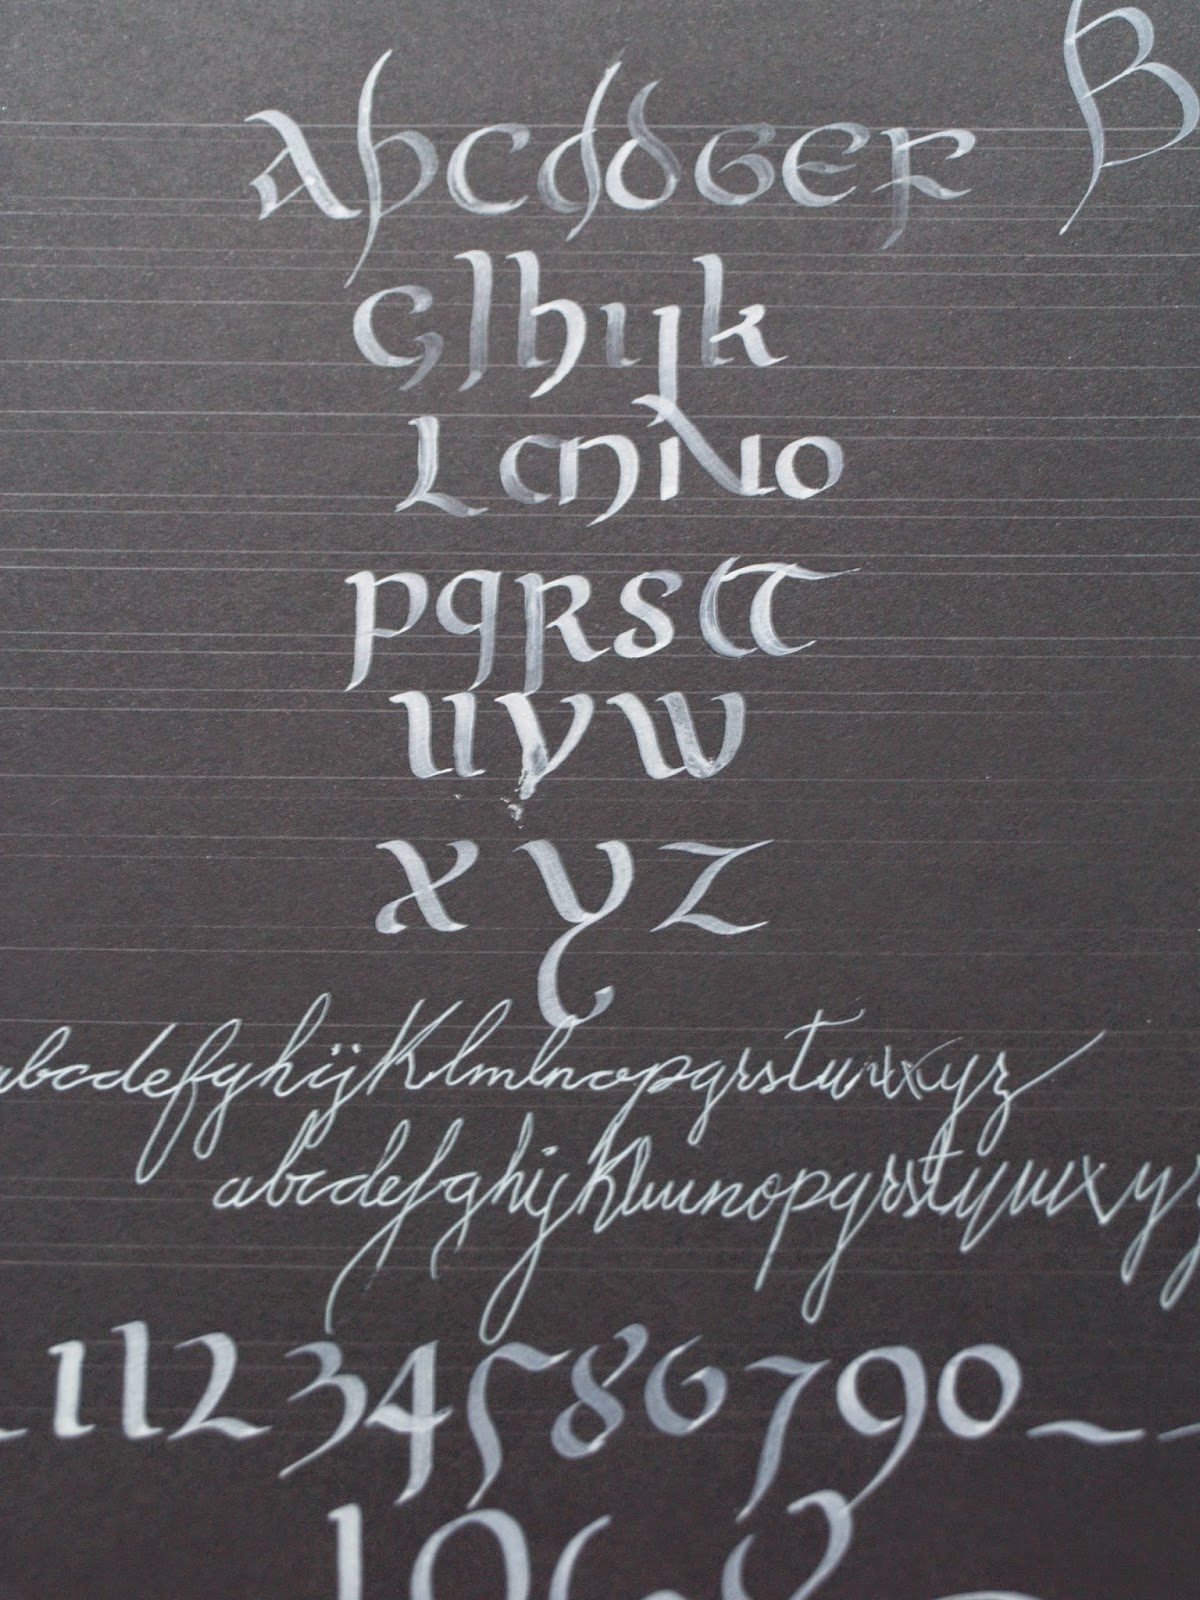 B
AbCddGEF
GlhijK
LmNuo
pqRSTT
uvw
XYZ
abcdefghijklmnopqrstuvxyz
abcdefghijklmnopqrstyuuxyz
11234586790